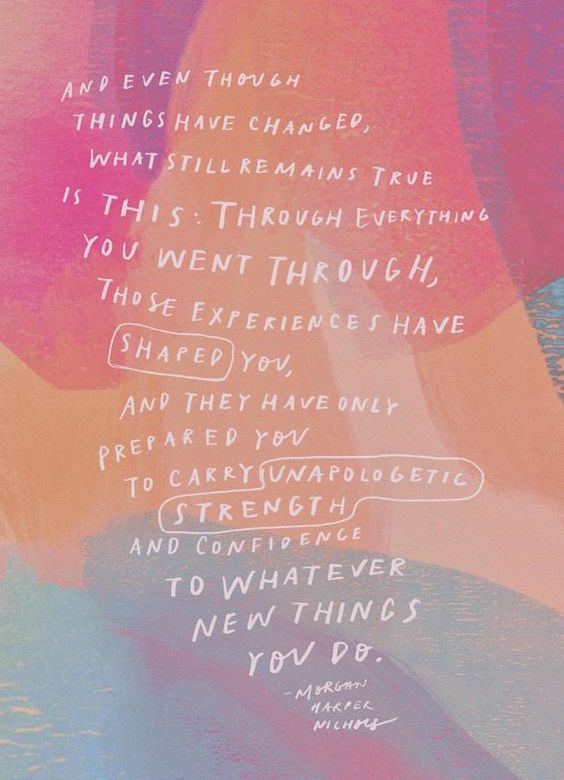 AND EVEN THOUGH
THINGS HAVE CHANGED,
WHAT STILL REMAINS TRUE
IS THIS: THROUGH EVERYTHING
YOU WENT THROUGH,
THOSE EXPERIENCES HAVE
SHAPED YOU,
AND THEY HAVE ONLY
PREPARED YOU
TO CARRY UNAPOLOGETIC
STRENGTH
AND CONFIDENCE
TO WHATEVER
NEW THINGS
YOU DO.
-MORGAN
HARPER
NICHOLS